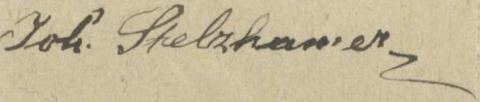 Joh. Stelzhamer